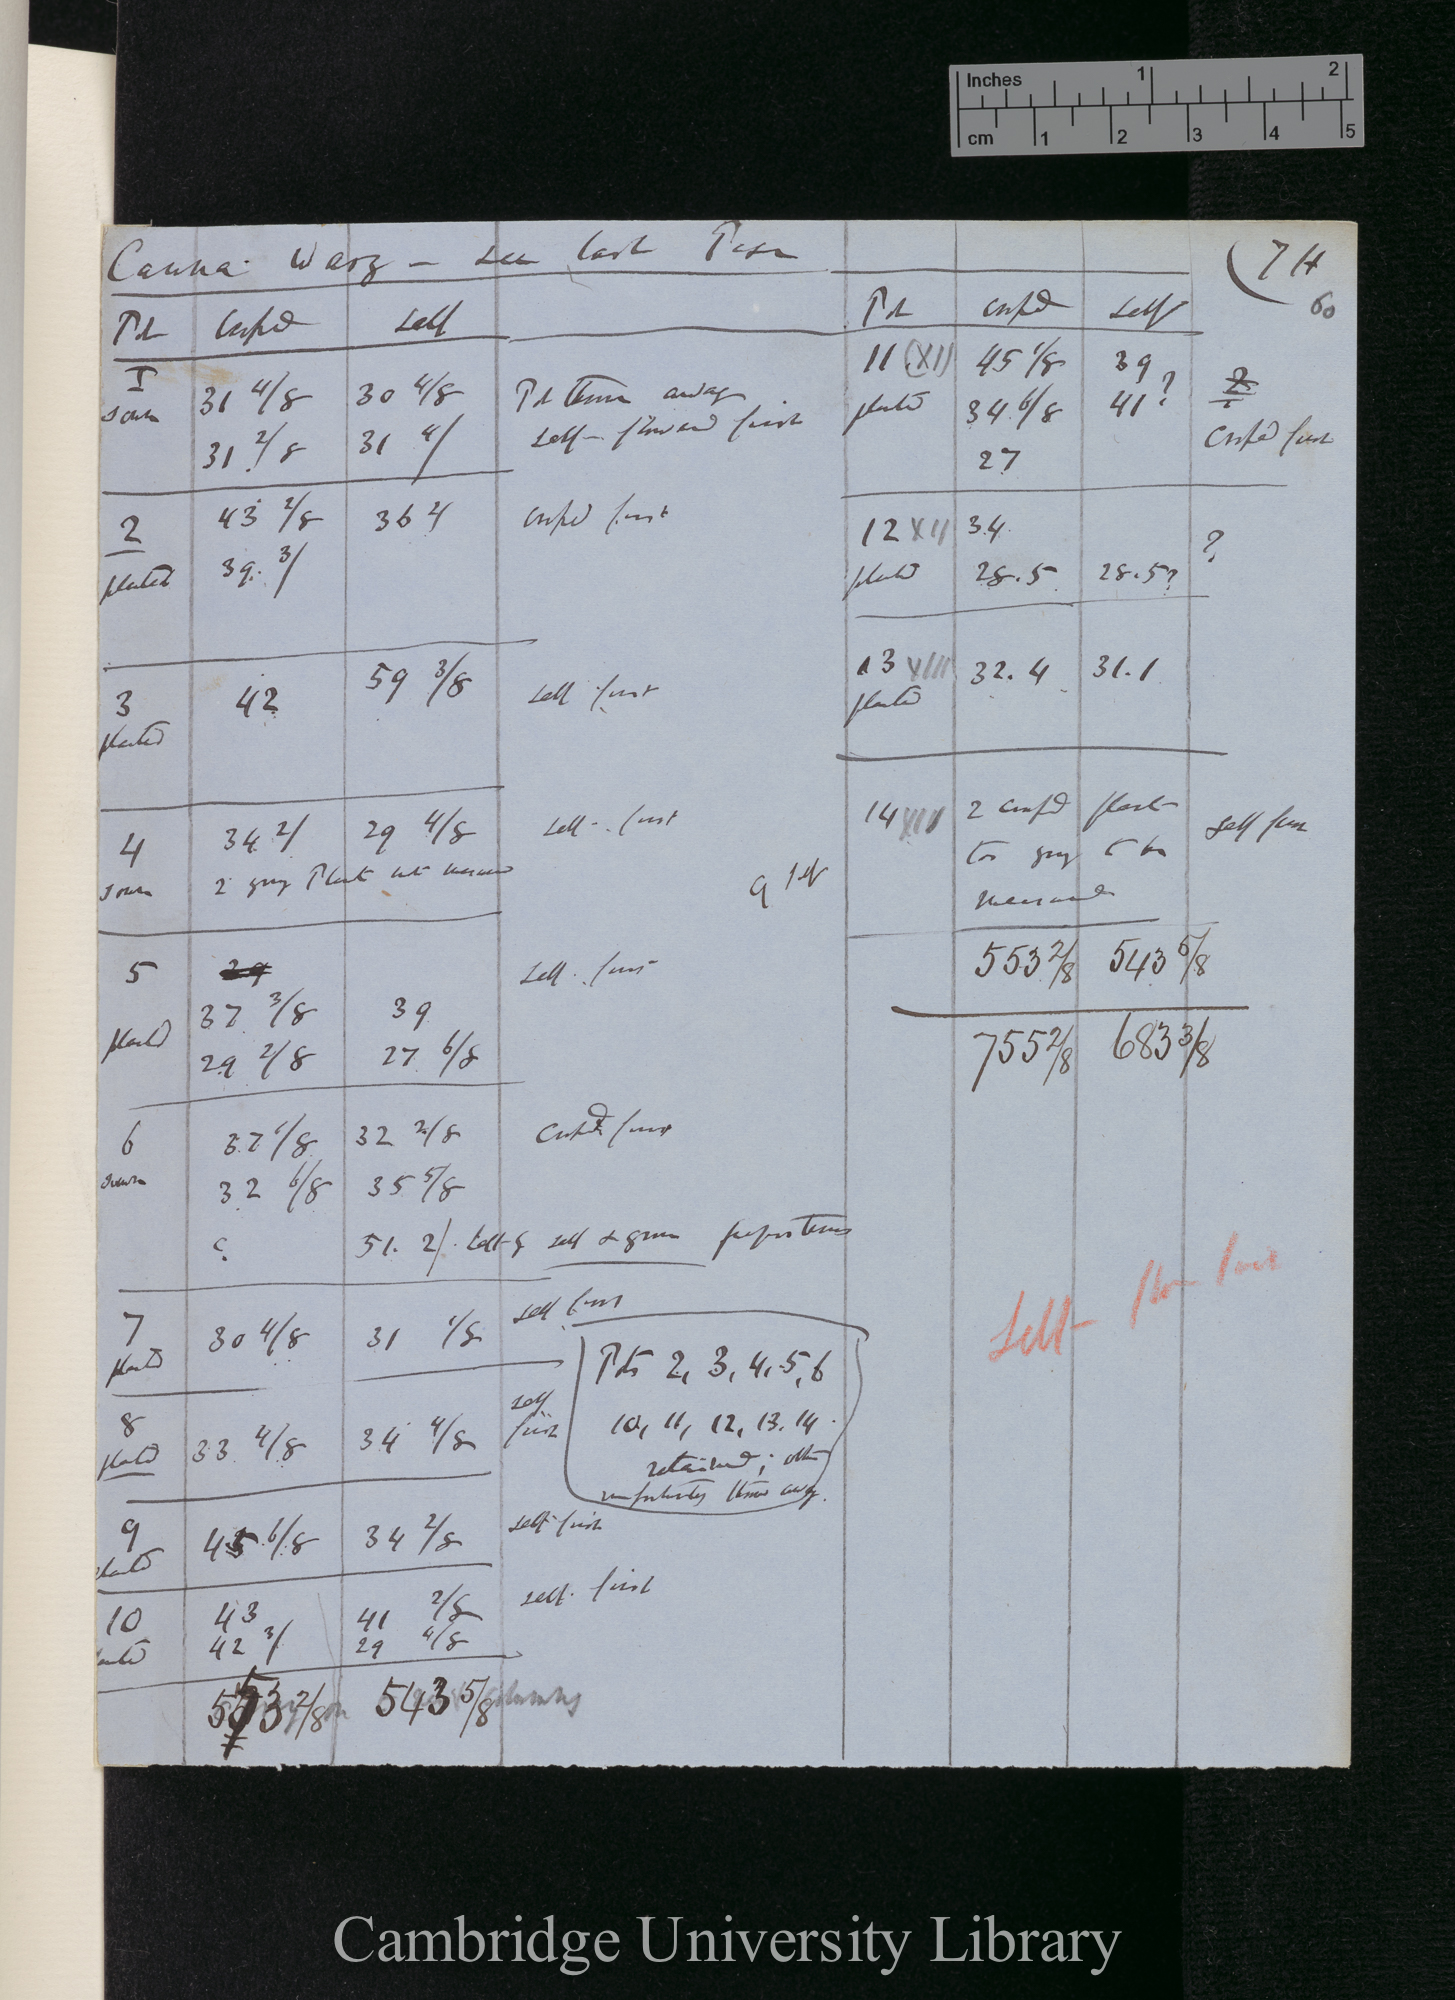 Inches 1 2
cm 1 2 3 4 5
Canna. Warz - see last
7 H
60
Pot Crossed Self
I 31 4/8 30 4/8 Pot thrown away
sown 31 2/8 31 4/ Self - flowered first
2 43 2/8 36 4 Crossed first
planted 39. 3/
3 42 59 3/8 Self first
planted
4 34 2/ 29 4/8 Self - first
sown 2 young Plants not measured
9
5 29 Self. first
37 3/8 39
planted 29 2/8 27 6/8
6 37 1/8 32 2/8 Crossed first
sown 32 6/8 35 5/8
51. 2/ self
7 30 4/8 31 1/8 self first
planted
8 33 4/8 34 4/8 self
planted first
9 45 6/8 34 2/8 self first
planted
10 43 41 2/8 self. first
planted 42 3/ 29 4/8
553 2/8 543 5/8
Pots 2, 3, 4, 5, 6
10, 11, 12, 13. 14.
retained; others
unfortunately thrown away.
Pot Crossed Self
11 (XII) 45 1/8 39
planted 34 6/8 41 ? ?
27 Crossed first
12 XII 34
planted 28.5 28.5? ?
13 XIII 32. 4 31. 1
planted
14 XIII 2 crossed plants self first
too young to be
measured
553 2/8 543 5/8
755 2/8 683 3/8
Self - flower first
Cambridge University Library